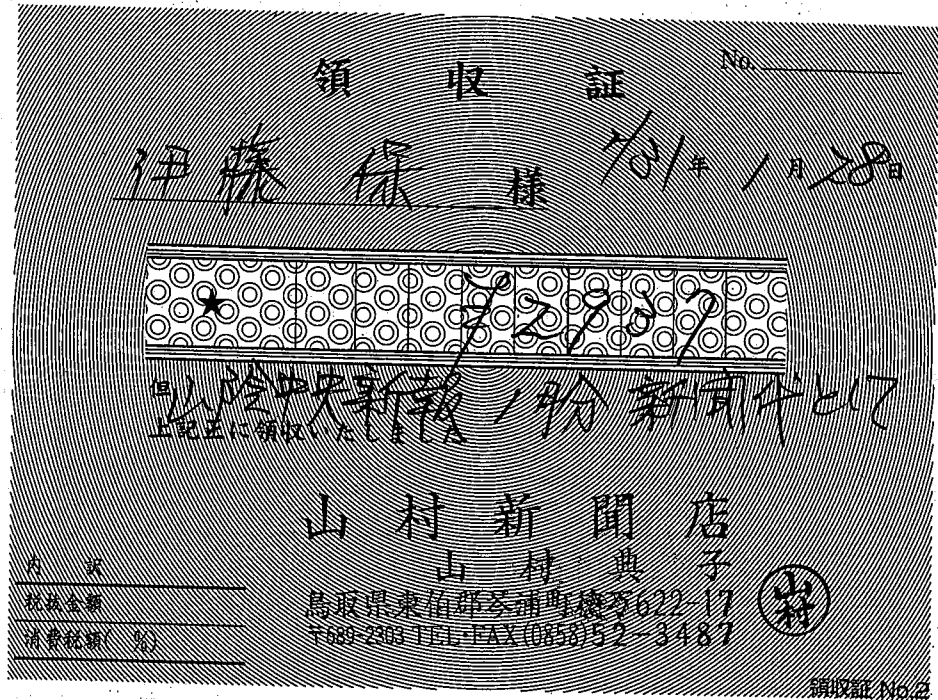 領収証 No.
伊藤 保 様 H31年 1月28日
★ ¥2937
但 山陰中央新報 1月分 新聞代として
上記正に領収いたしました
山村新聞店
山村典子
鳥取県東伯郡琴浦町徳万622-17
〒689-2303 TEL・FAX(0858)52-3487
山村
内訳
税抜金額
消費税額( %)
領収証 No.2